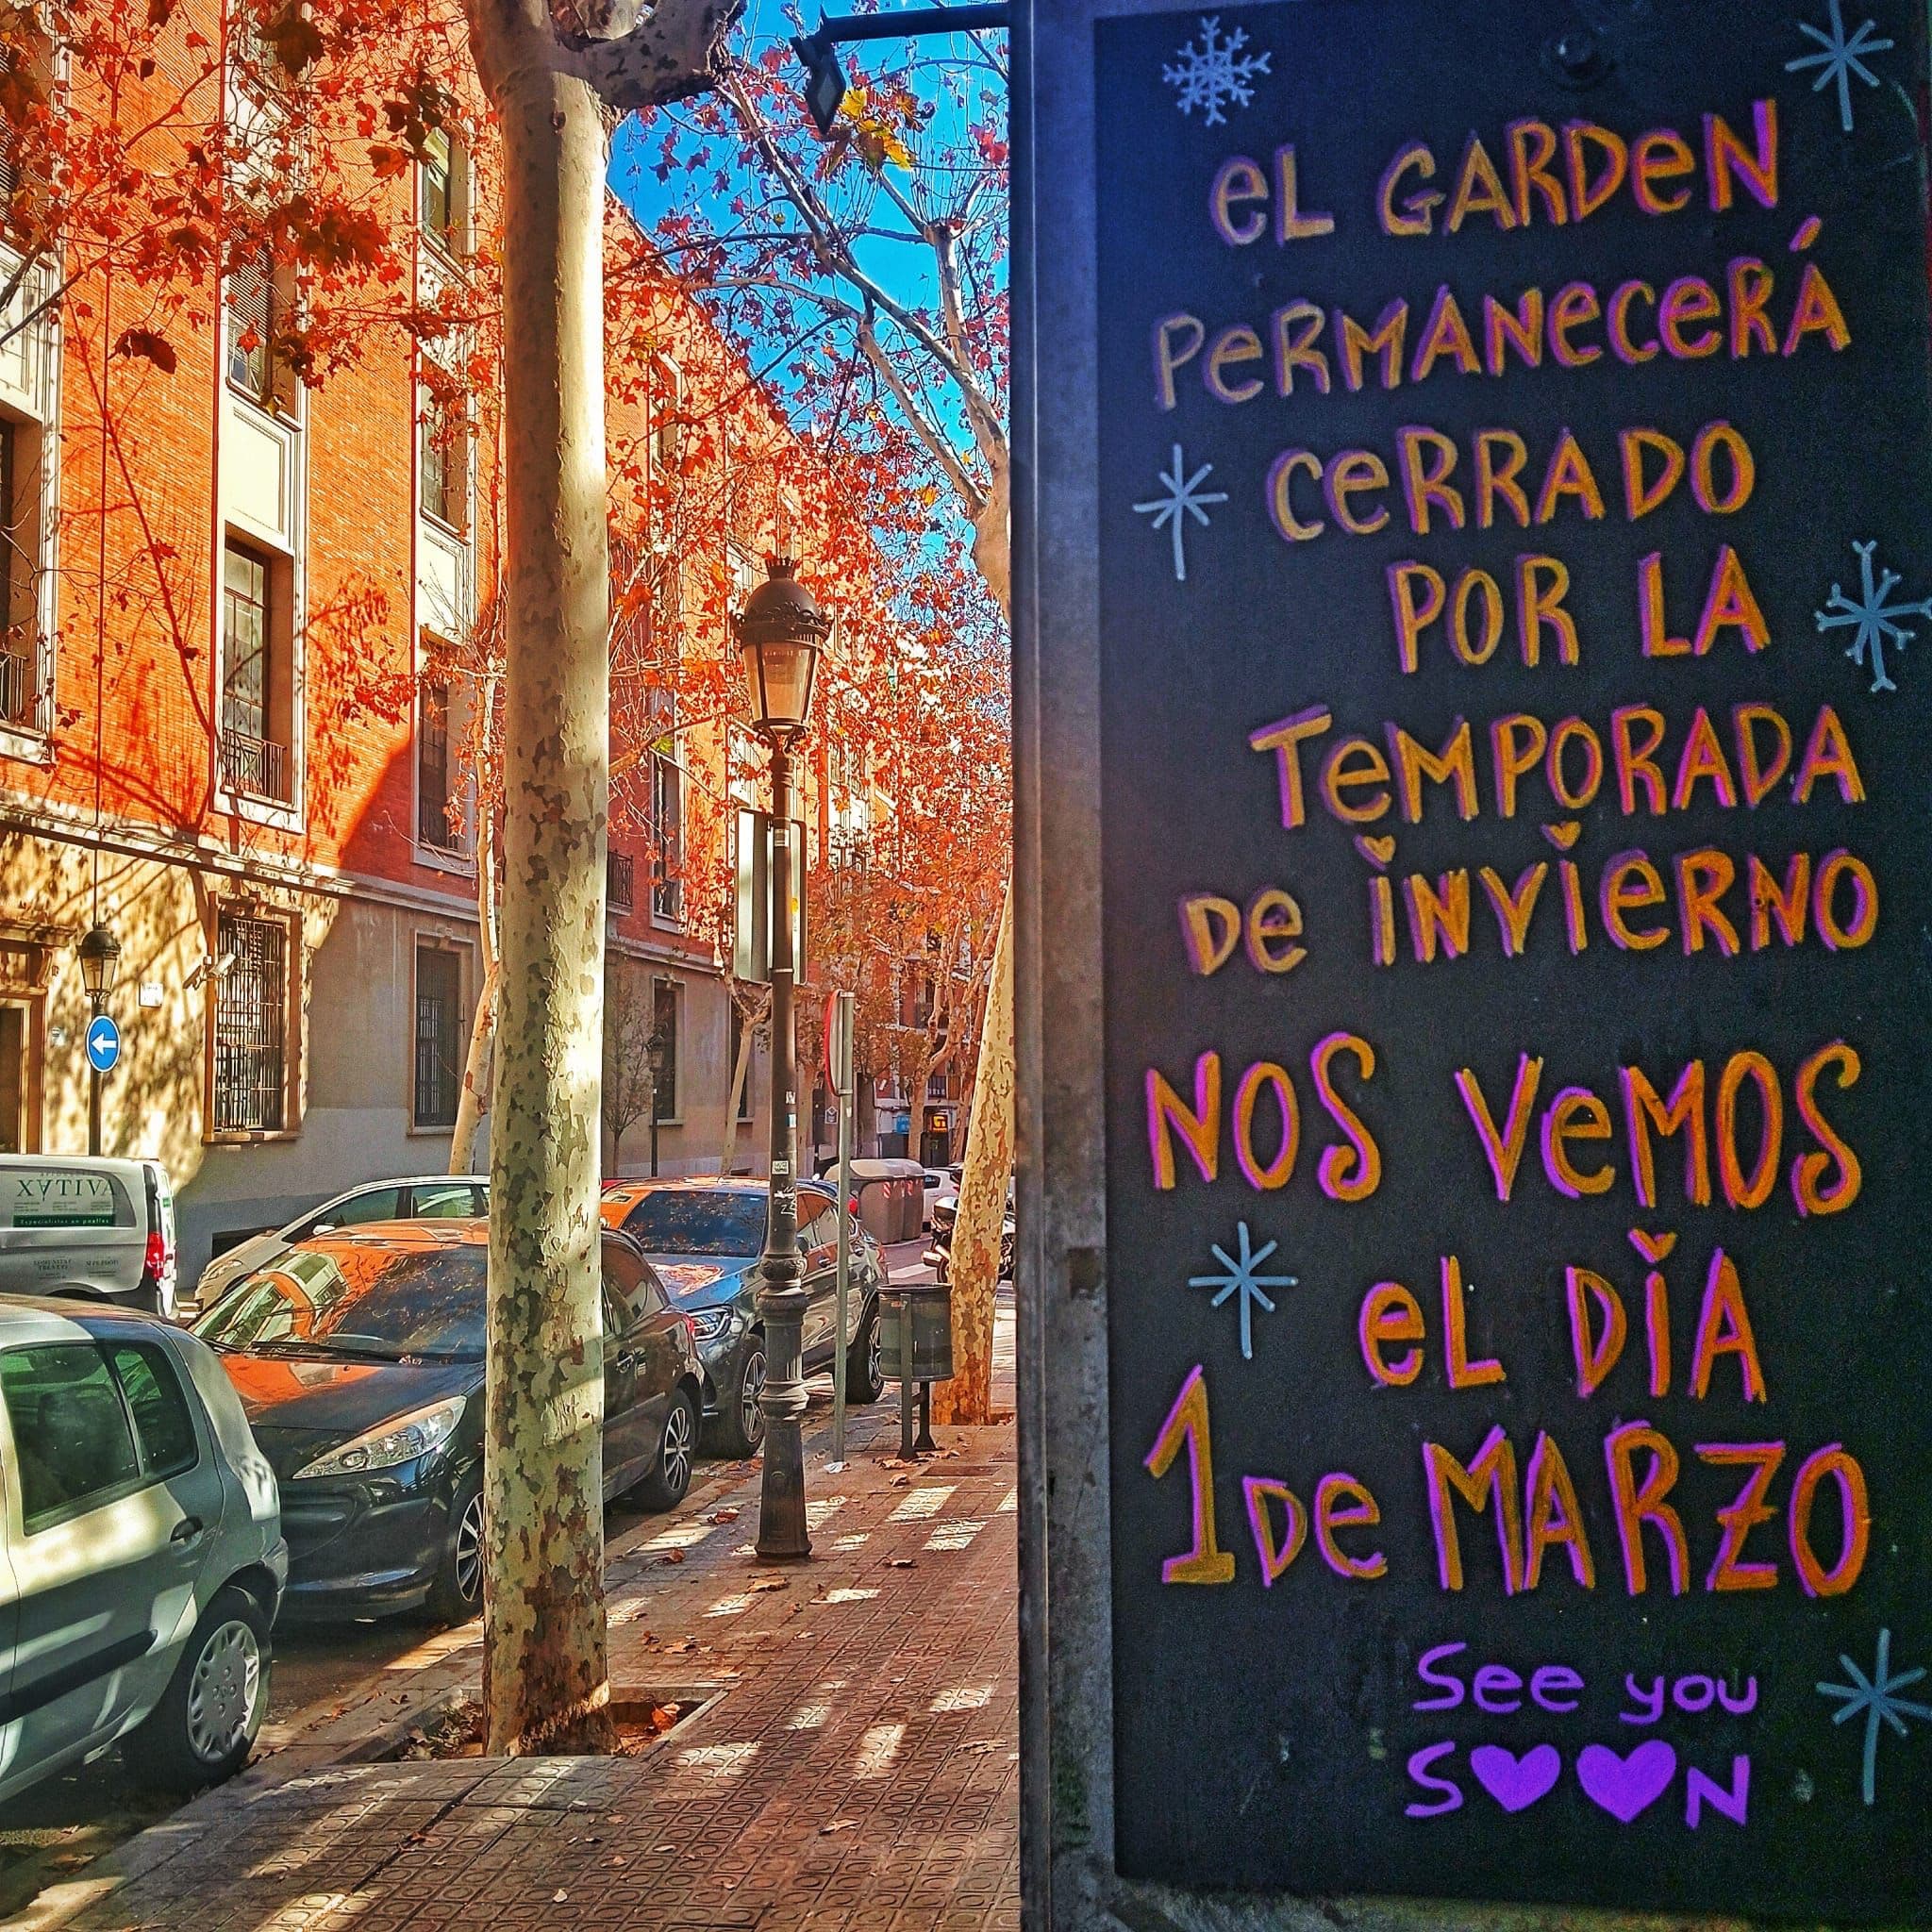 eL GARDeN
PeRMANeCeRÁ
CeRRADO
POR LA
TeMPORADA
De iNViERNO
NOS VeMOS
eL DÍA
1 De MARZO
See you
S♥♥N
XÀTIVA
Especialistes en paelles